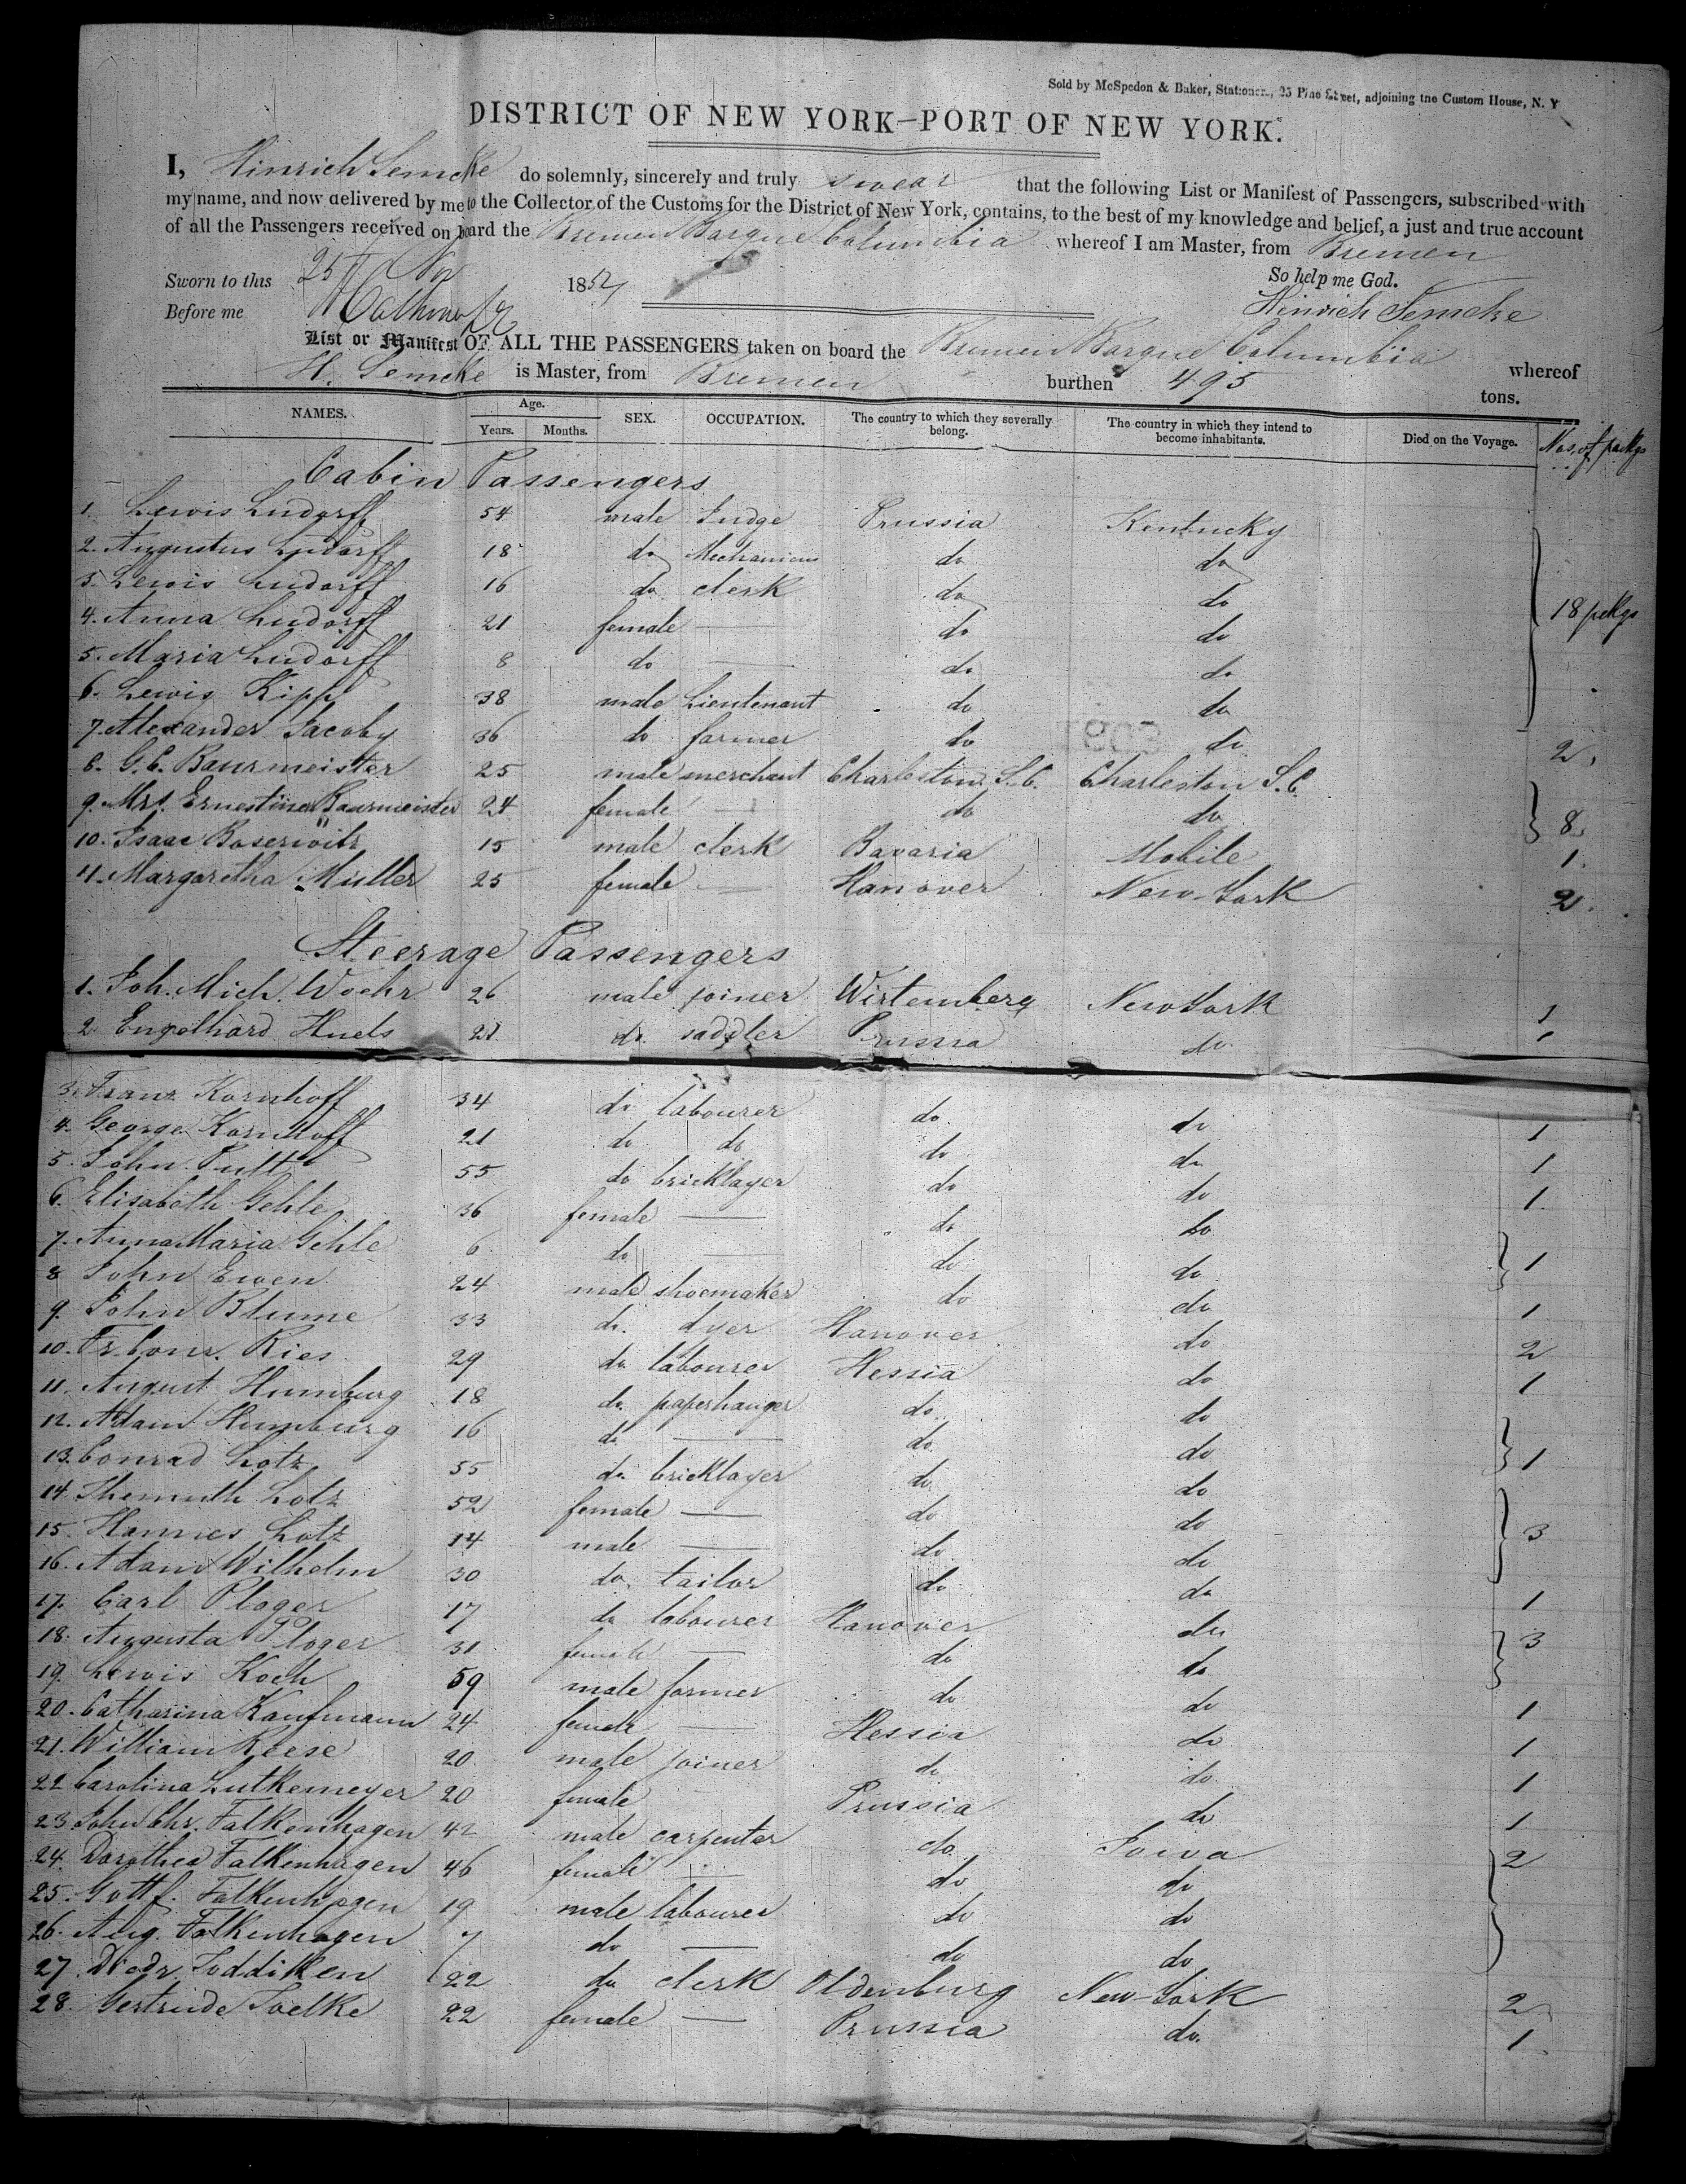 Sold by McSpedon & Baker, Stationers, 25 Pine Street, adjoining the Custom House, N. Y
DISTRICT OF NEW YORK—PORT OF NEW YORK.
I, Hinrich Semcke do solemnly, sincerely and truly swear that the following List or Manifest of Passengers, subscribed with
my name, and now delivered by me to the Collector of the Customs for the District of New York, contains, to the best of my knowledge and belief, a just and true account
of all the Passengers received on board the Bremen Barque Columbia whereof I am Master, from Bremen
So help me God.
Sworn to this 25th Nov 1852
Hinrich Semcke
Before me
List or Manifest OF ALL THE PASSENGERS taken on board the Bremen Barque Columbia whereof
H. Semcke is Master, from Bremen burthen 495 tons.
NAMES. Age. Years. Months. SEX. OCCUPATION. The country to which they severally belong. The country in which they intend to become inhabitants. Died on the Voyage. Nos. of pckgs
Cabin Passengers
1. Lewis Ludorff 54 male Judge Prussia Kentucky
2. Augustus Ludorff 18 do Mechanicus do do
3. Lewis Ludorff 16 do clerk do do
4. Anna Ludorff 21 female — do do 18 pckgs
5. Maria Ludorff 8 do — do do
6. Lewis Kipp 38 male Lieutenant do do
7. Alexander Jacoby 36 do farmer do do 2.
8. G. C. Baurmeister 25 male merchant Charleston, S. C. Charleston S. C.
9. Mrs. Ernestine Baurmeister 24 female — do do 8.
10. Isaac Baserwitz 15 male clerk Bavaria Mobile 1.
11. Margaretha Müller 25 female — Hanover New-York 2.
Steerage Passengers
1. Joh. Mich. Woehr 26 male joiner Wirtemberg New York 1
2 Engelhard Huels 21 do. saddler Prussia do. 1
3. Franz Kornhoff 34 do labourer do. do 1
4. George Kornhoff 21 do do do do 1
5. John Pult 55 do bricklayer do do 1.
6. Elisabeth Gehle 36 female — do do
7. Anna Maria Gehle 6 do — do do 1
8 John Ewen 24 male shoemaker do do 1
9. John Blume 33 do. dyer Hanover do 2
10. Fr. Conr. Ries 29 do labourer Hessia do 1
11. August Humburg 18 do. paperhanger do. do
12. Adam Humburg 16 do — do do 1
13. Conrad Lotz 55 do. bricklayer do. do
14. Themuth Lotz 52 female — do do
15. Hannes Lotz 14 male — do do 3
16. Adam Wilhelm 30 do. tailor do do 1
17. Carl Ploger 17 do labourer Hanover do
18. Augusta Ploger 31 female — do do 3
19. Lewis Koch 59 male farmer do do 1
20. Catharina Kaufmann 24 female — Hessia do 1
21. William Reese 20 male joiner do do 1
22 Carolina Lutkemeyer 20 female Prussia do 1
23. John Chr. Falkenhagen 42 male carpenter do. Iowa 2
24. Dorothea Falkenhagen 46 female — do do
25. Gottf. Falkenhagen 19 male labourer do do
26. Aug. Falkenhagen 7 do — do do
27. Diedr Toddiken 22 do clerk Oldenburg New-York 2
28. Gertrude Toelke 22 female — Prussia do. 1